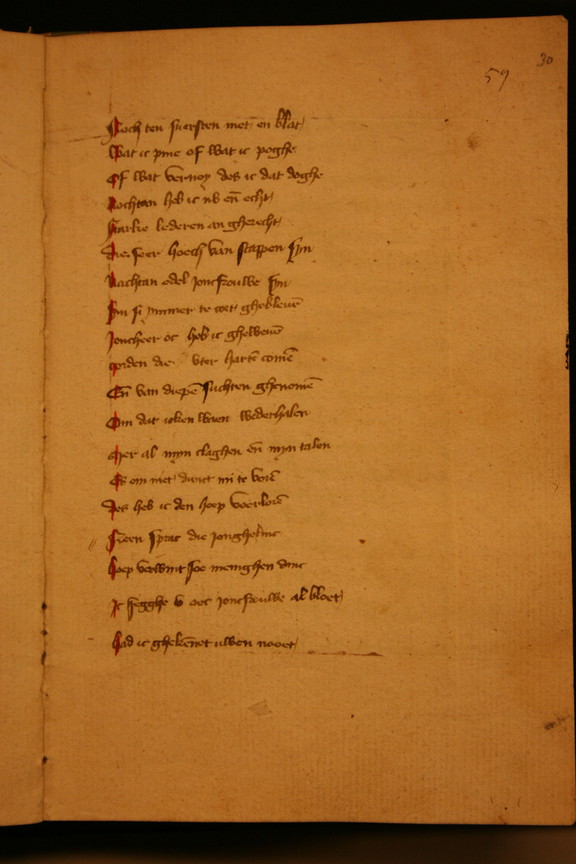 59 30
Noch ten suarsten niet en blat
Wat ic pine of wat ic poghe
Of wat vernoy des ic dat doghe
Nochtan heb ic nv en̄ echt
Starlic lederen an gherecht
Die seer hoech van stappen sijn
Nachtan edel joncfrouwe fijn
Bin si nummer te wet ghebleuē
Joncheer oc heb ic ghescreuē
worden die vter hartē comē
En̄ van diepē suchten ghenomē
Om dat icken wen wederhalen
Mer al mijn claghen en̄ mijn talen
Es om niet dunct mi te vorē
Des heb ic den hoep verlorē
sueen sprac die jonghelinc
hoep verwint soe menighen dinc
Jc segghe v oec joncfrouwe al bloet
had ic ghekēnet uwen noeet